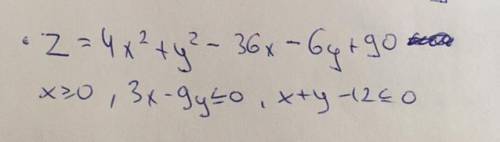 Z = 4x² + y² - 36x - 6y + 90
x ≥ 0 , 3x - 9y ≤ 0 , x + y - 12 ≤ 0